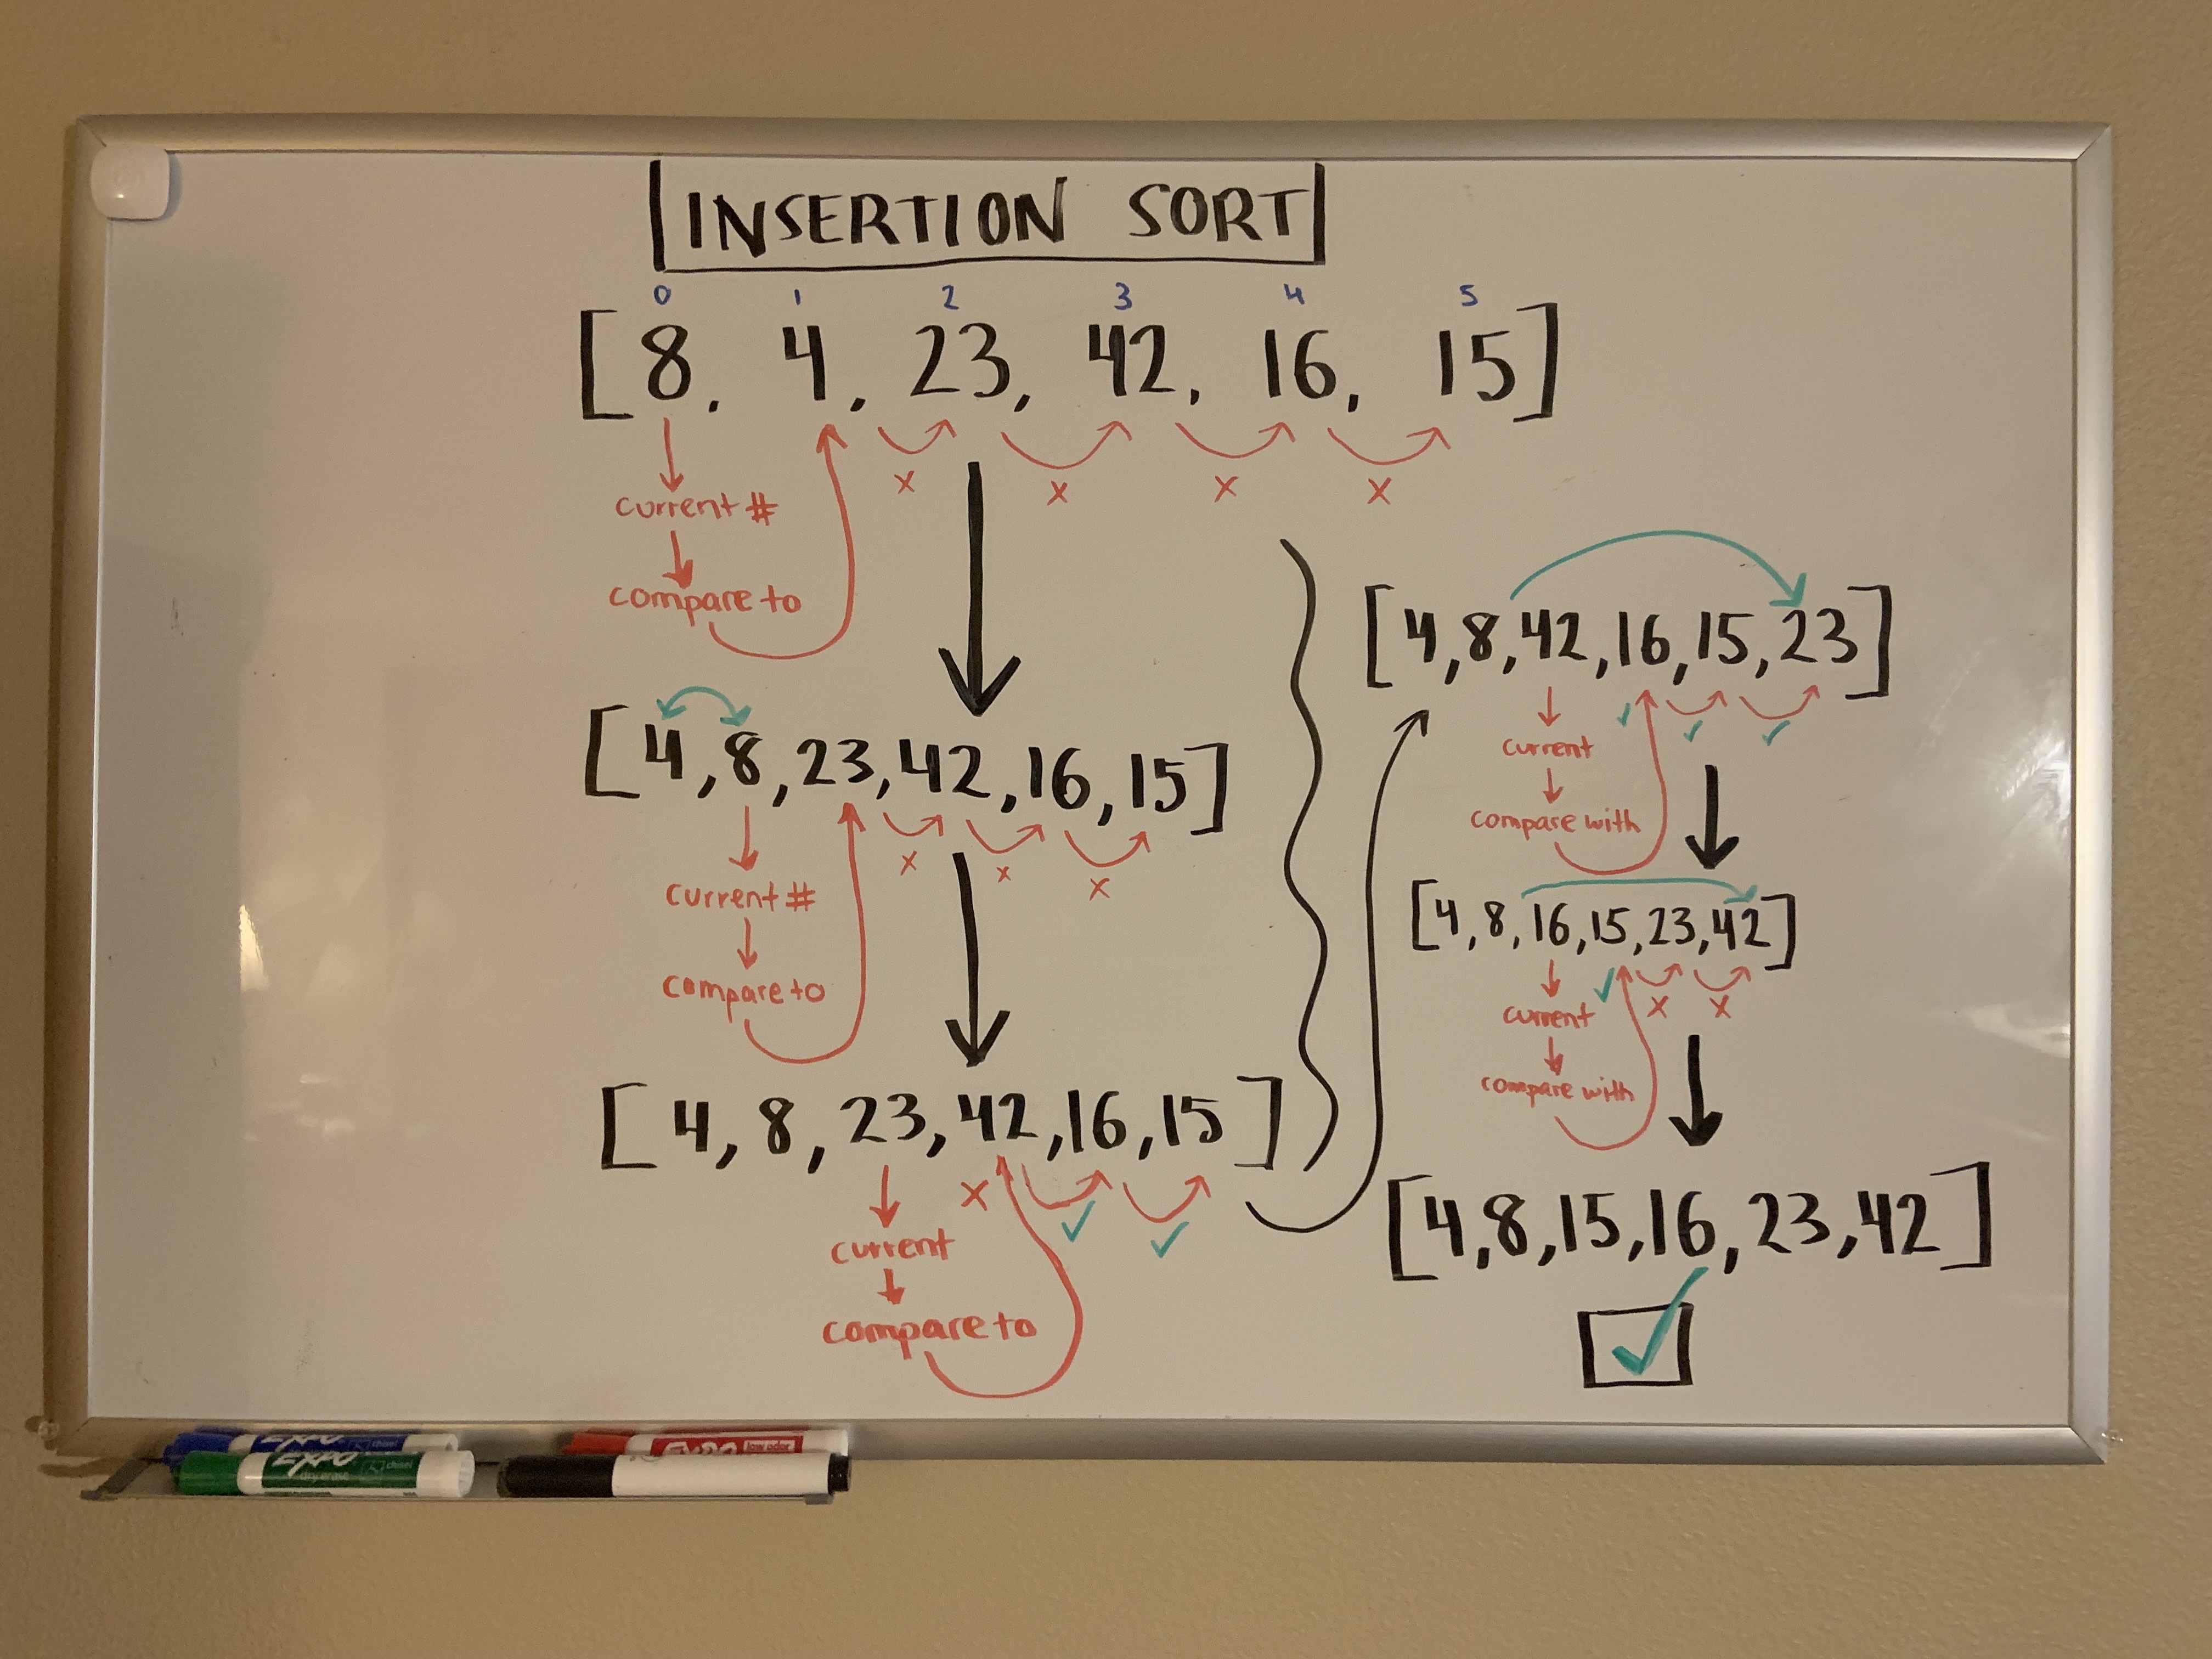 INSERTION SORT
0 1 2 3 4 5
[8, 4, 23, 42, 16, 15]
x x x x
current #
compare to
[4,8,23,42,16,15]
x x x
current #
compare to
[4,8,23,42,16,15]
x ✓ ✓
current
compare to
[4,8,42,16,15,23]
✓ ✓ ✓
current
compare with
[4,8,16,15,23,42]
✓ x x
current
compare with
[4,8,15,16,23,42]
✓
EXPO
chisel
EXPO
dry erase
chisel
EXPO
low odor